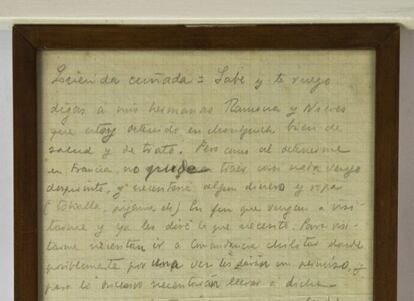 cuñada = Sabe y te ruego
digas a mis hermanas Ramona y Nieves
que estoy detenido en bien de
salud y de trato. Pero como al detenerme
en Francia, no pude traer con nada vengo
desprovisto, y necesitaré algún dinero y ropa
(toballa, pijama, etc) En fin que vengan a visi-
tarme y ya les diré lo que necesito. Para visi-
tarme necesitan ir a Comandancia Militar donde
posiblemente por una vez les darán un permiso, y
para lo sucesivo necesitarán llevar a dicha